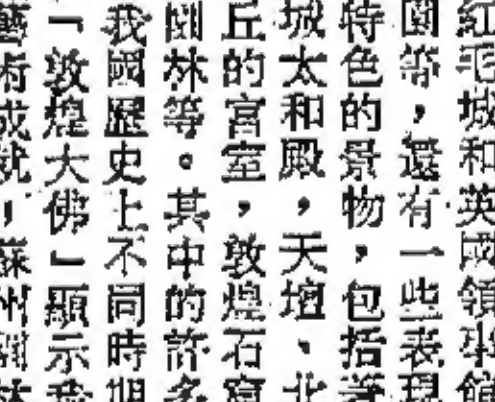 紅毛城和英國領事館
園等，還有一些表現
特色的景物，包括
城太和殿，天壇、北
丘的宮室，敦煌石窟
園林等。其中的許多
我國歷史上不同時期
「敦煌大佛」顯示我
藝術成就，蘇州園林